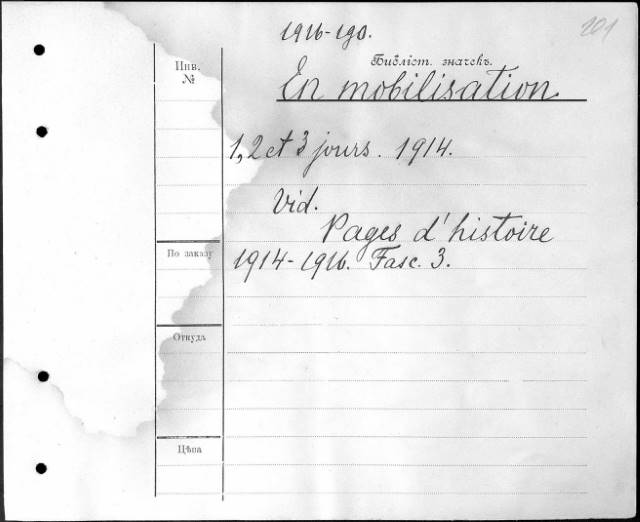 201
1916-190.
Библіот. значекъ.
Инв.
№
En mobilisation
1, 2 et 3 jours. 1914.
Vid.
Pages d'histoire
По заказу
1914-1916. Fasc. 3.
Откуда
Цѣна